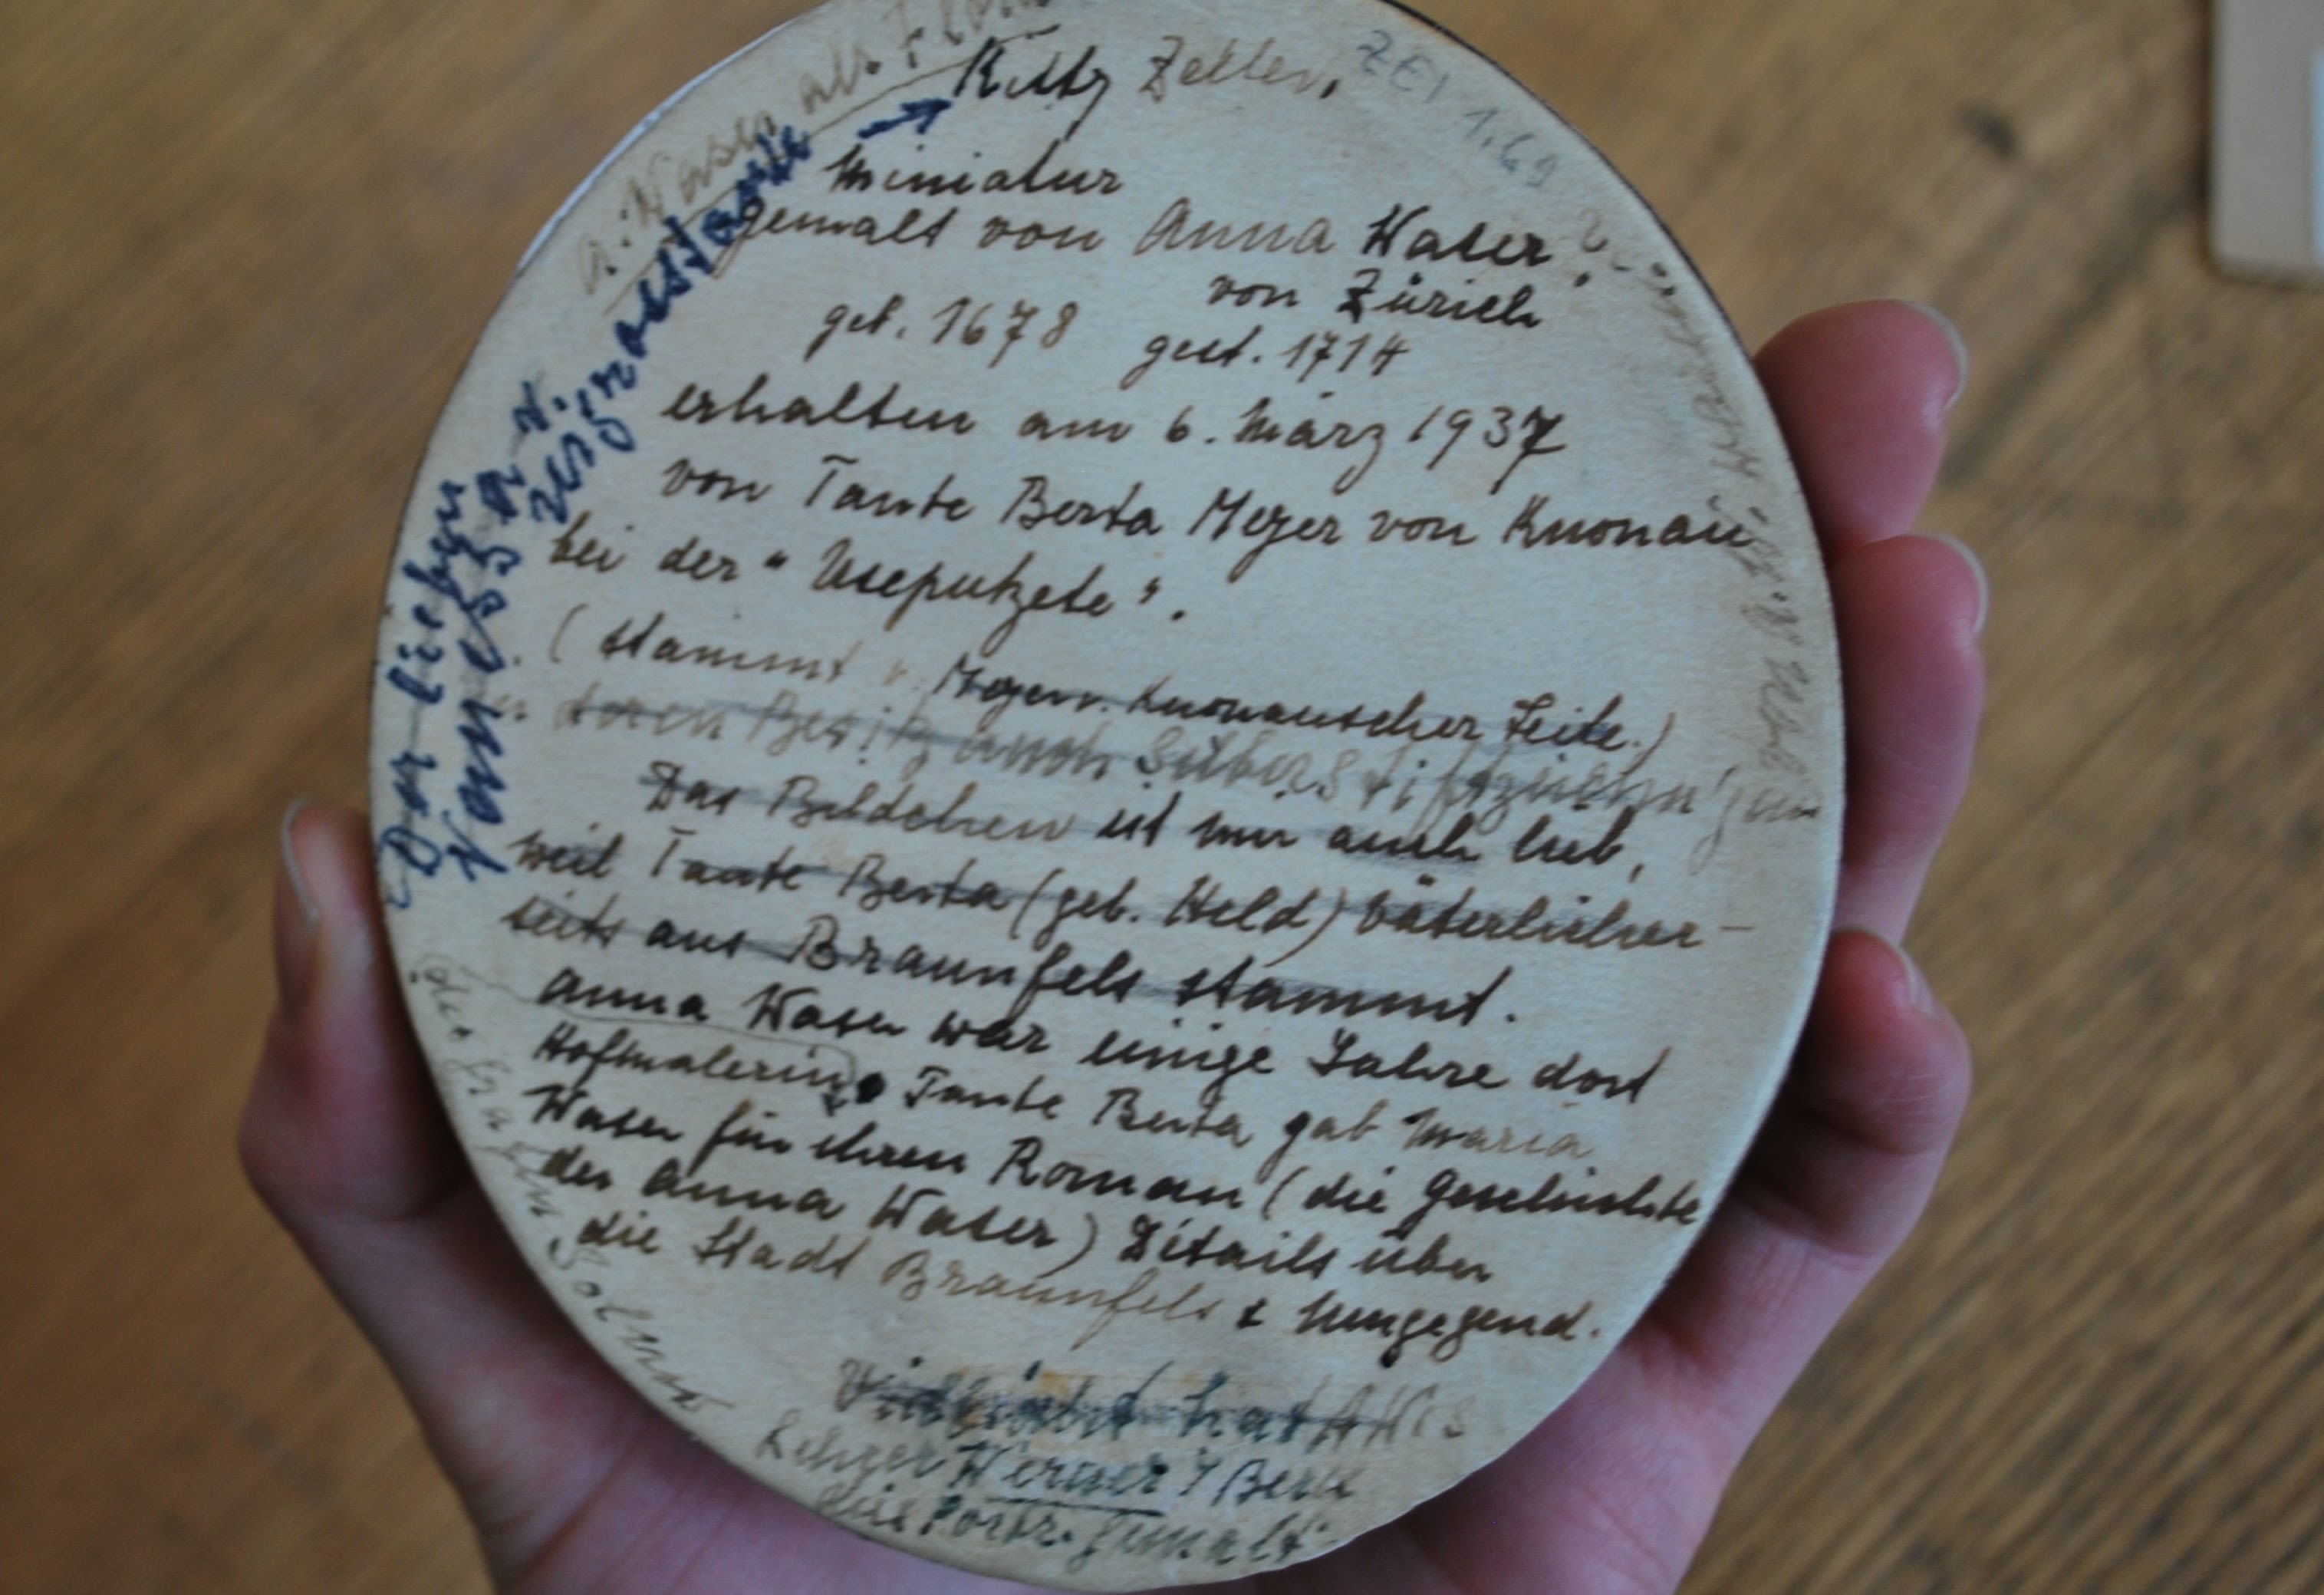 A. Waser als
Kitty Zeller,
ZEI 1.69
Miniatur
gemalt von Anna Waser ?
von Zürich
geb. 1678 gest. 1714
erhalten am 6. März 1937
von Tante Berta Meyer von Knonau
bei der "Useputzete".
(stammt v. Meyer v. Knonauscher Seite.)
deren Besitz auch Silberstiftzeichn'gen
Das Bildchen ist mir auch lieb,
weil Tante Berta (geb. Held) väterlicher-
seits aus Braunfels stammt.
Anna Waser war einige Jahre dort
Hofmalerin. Tante Berta gab Maria
Waser für ihren Roman (die Geschichte
der Anna Waser) Details über
die Stadt Braunfels & Umgegend.
Vielleicht hat
Lehrer Werner i/Bern
die Portr. gemalt
Der lieben
Urgrosstante →
der Grafen Solms